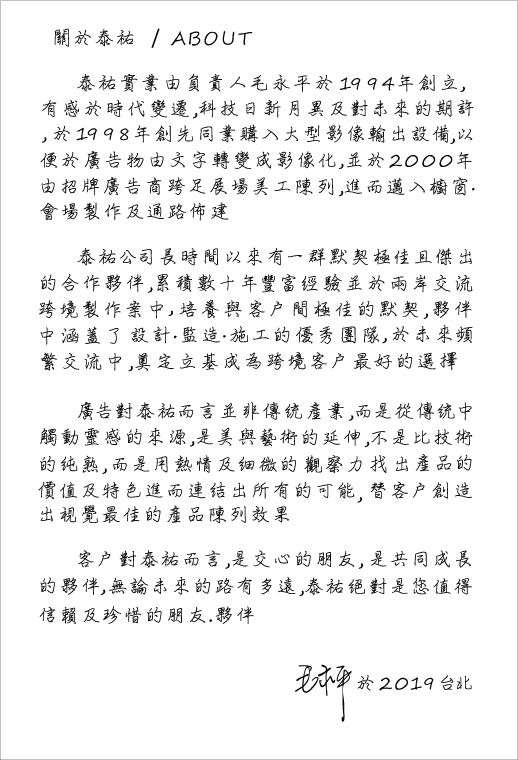 關於泰祐 / ABOUT
泰祐實業由負責人毛永平於1994年創立,
有感於時代變遷,科技日新月異及對未來的期許
,於1998年創先同業購入大型影像輸出設備,以
便於廣告物由文字轉變成影像化,並於2000年
由招牌廣告商跨足展場美工陳列,進而邁入櫥窗·
會場製作及通路佈建
泰祐公司長時間以來有一群默契極佳且傑出
的合作夥伴,累積數十年豐富經驗並於兩岸交流
跨境製作案中,培養與客戶間極佳的默契,夥伴
中涵蓋了設計·監造·施工的優秀團隊,於未來頻
繁交流中,奠定立基成為跨境客戶最好的選擇
廣告對泰祐而言並非傳統產業,而是從傳統中
觸動靈感的來源,是美與藝術的延伸,不是比技術
的純熟,而是用熱情及細微的觀察力找出產品的
價值及特色進而連結出所有的可能,替客戶創造
出視覺最佳的產品陳列效果
客戶對泰祐而言,是交心的朋友,是共同成長
的夥伴,無論未來的路有多遠,泰祐絕對是您值得
信賴及珍惜的朋友.夥伴
毛永平 於2019台北